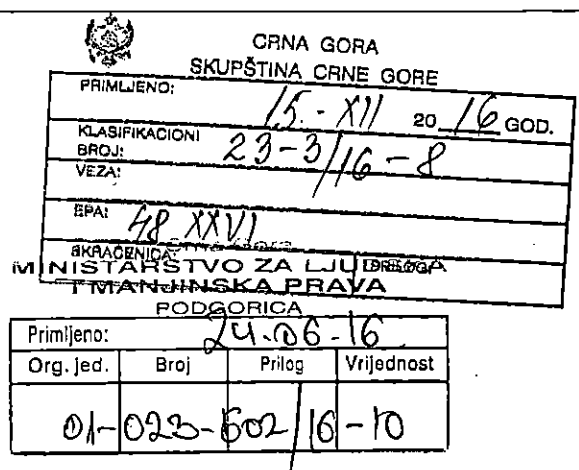 CRNA GORA
SKUPŠTINA CRNE GORE
PRIMLJENO: 15. - XII 20 16 GOD.
KLASIFIKACIONI
BROJ: 23-3/16-8
VEZA:
EPA: 48 XXVI
SKRAĆENICA: PRILOG:
MINISTARSTVO ZA LJUDSKA
I MANJINSKA PRAVA
PODGORICA
Primljeno: 24.06-16
Org. jed. Broj Prilog Vrijednost
01- 023-602/16-10